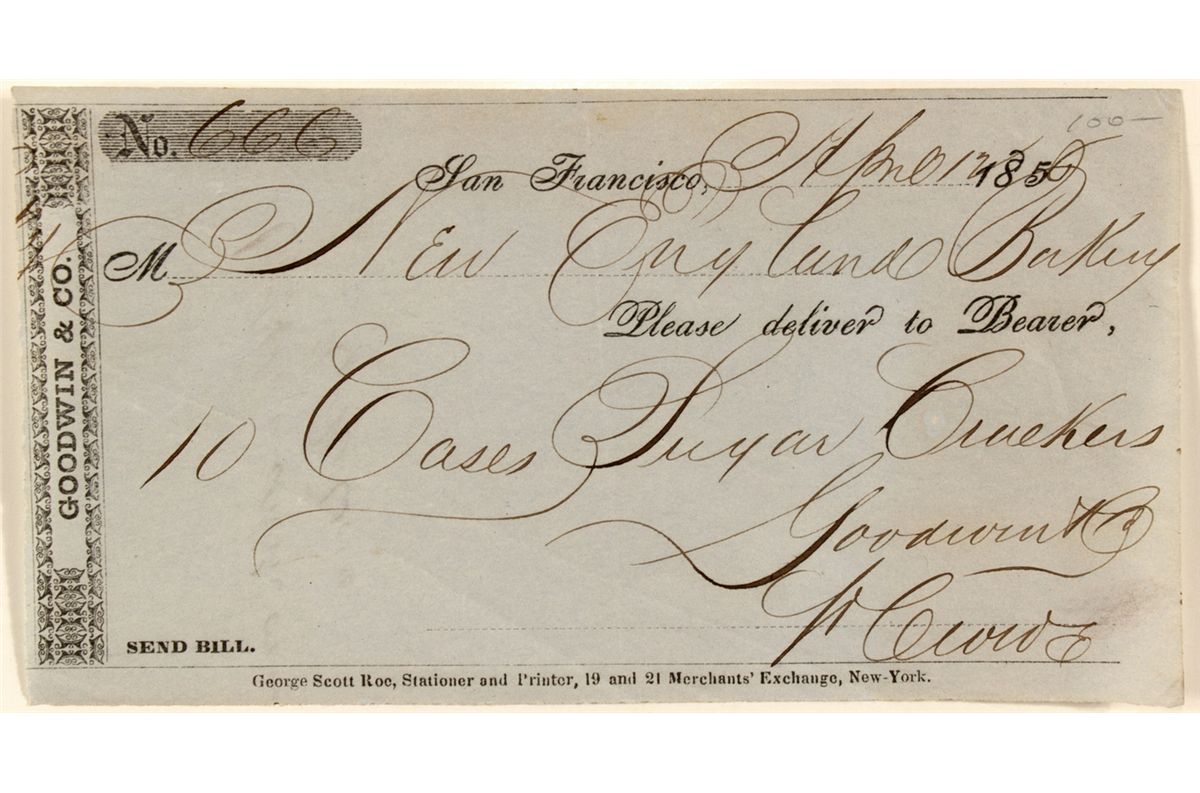 GOODWIN & CO.
No. 666
100—
San Francisco, April 12 185
M New England Bakery
Please deliver to Bearer,
10 Cases Sugar Crackers
Goodwin & Co
SEND BILL.
George Scott Roe, Stationer and Printer, 19 and 21 Merchants' Exchange, New-York.